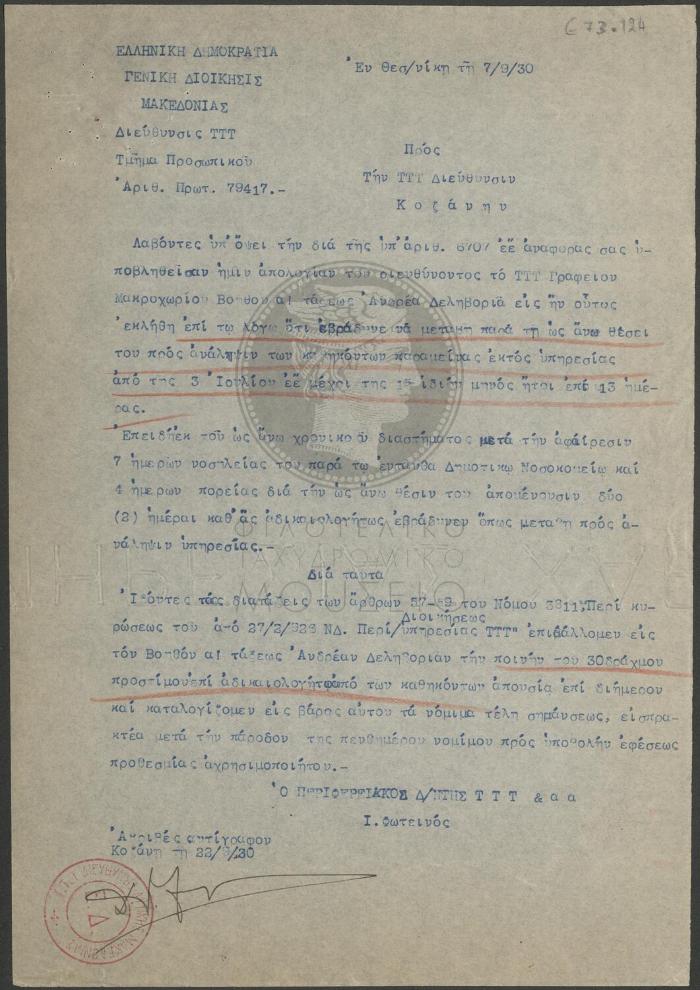 C 73.124
ΕΛΛΗΝΙΚΗ ΔΗΜΟΚΡΑΤΙΑ
ΓΕΝΙΚΗ ΔΙΟΙΚΗΣΙΣ
ΜΑΚΕΔΟΝΙΑΣ
Διεύθυνσις ΤΤΤ
Τμῆμα Προσωπικοῦ
Ἀριθ. Πρωτ. 79417.-
Ἐν Θεσ/νίκη τῆ 7/9/30
Πρός
Τήν ΤΤΤ Διεύθυνσιν
Κοζάνην
Λαβόντες ὑπ'ὄψει τήν διά τῆς ὑπ'ἀριθ. 6707 ἐἔ ἀναφορᾶς σας ὑ-
ποβληθεῖσαν ἡμῖν ἀπολογίαν τοῦ διευθύνοντος τό ΤΤΤ Γραφεῖον
Μακροχωρίου Βοηθοῦ α! τάξεως Ἀνδρέα Δεληβοριᾶ εἰς ἥν οὗτος
ἐκλήθη ἐπί τῷ λόγῳ ὅτι ἐβράδυνε νά μεταβῆ παρά τῆ ὡς ἄνω θέσει
του πρός ἀνάληψιν τῶν καθηκόντων παραμείνας ἐκτός ὑπηρεσίας
ἀπό τῆς 3 Ἰουλίου ἐἔ μέχρι τῆς 15 ἰδίου μηνός ἤτοι ἐπί 13 ἡμέ-
ρας.
Ἐπειδή ἐκ τοῦ ὡς ἄνω χρονικοῦ διαστήματος μετά τήν ἀφαίρεσιν
7 ἡμερῶν νοσηλείας του παρά τῷ ἐνταῦθα Δημοτικῷ Νοσοκομείῳ καί
4 ἡμερῶν πορείας διά τήν ὡς ἄνω θέσιν του ἀπομένουσιν δύο
(2) ἡμέραι καθ'ἅς ἀδικαιολογήτως ἐβράδυνεν ὅπως μεταβῆ πρός ἀ-
νάληψιν ὑπηρεσίας.-
Διά ταῦτα
Ἰδόντες τάς διατάξεις τῶν ἄρθρων 57-59 τοῦ Νόμου 3811,Περί κυ-
Διοικήσεως
ρώσεως τοῦ ἀπό 27/2/928 ΝΔ. Περί/ὑπηρεσίας ΤΤΤ" ἐπιβάλλομεν εἰς
τόν Βοηθόν α! τάξεως Ἀνδρέαν Δεληβοριᾶν τήν ποινήν τοῦ 30δράχμου
προστίμου ἐπί ἀδικαιολογήτῳ ἀπό τῶν καθηκόντων ἀπουσίᾳ ἐπί διήμερον
καί καταλογίζομεν εἰς βάρος αὐτοῦ τά νόμιμα τέλη σημάνσεως, εἰσπρα-
κτέα μετά τήν πάροδον τῆς πενθημέρου νομίμου πρός ὑποβολήν ἐφέσεως
προθεσμίας ἀχρησιμοποιήτου.-
Ὁ ΠΕΡΙΦΕΡΕΙΑΚΟΣ Δ/ΝΤΗΣ Τ Τ Τ & α α
Ι.Φωτεινός
Ἀκριβές ἀντίγραφον
Κοζάνη τῆ 22/9/30
ΦΙΛΟΤΕΛΙΚΟ
ΤΑΧΥΔΡΟΜΙΚΟ
ΜΟΥΣΕΙΟ